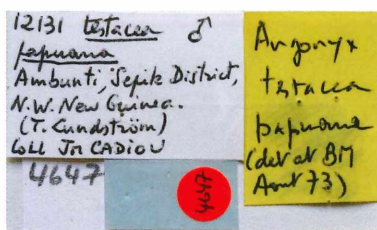 12131 testacea ♂
papuana
Ambunti, Sepik District,
N.W. New Guinea.
(T. Lundström)
Coll Jm CADIOU
4647
4647
Angonyx
testacea
papuana
(det at BM
Aout 73)